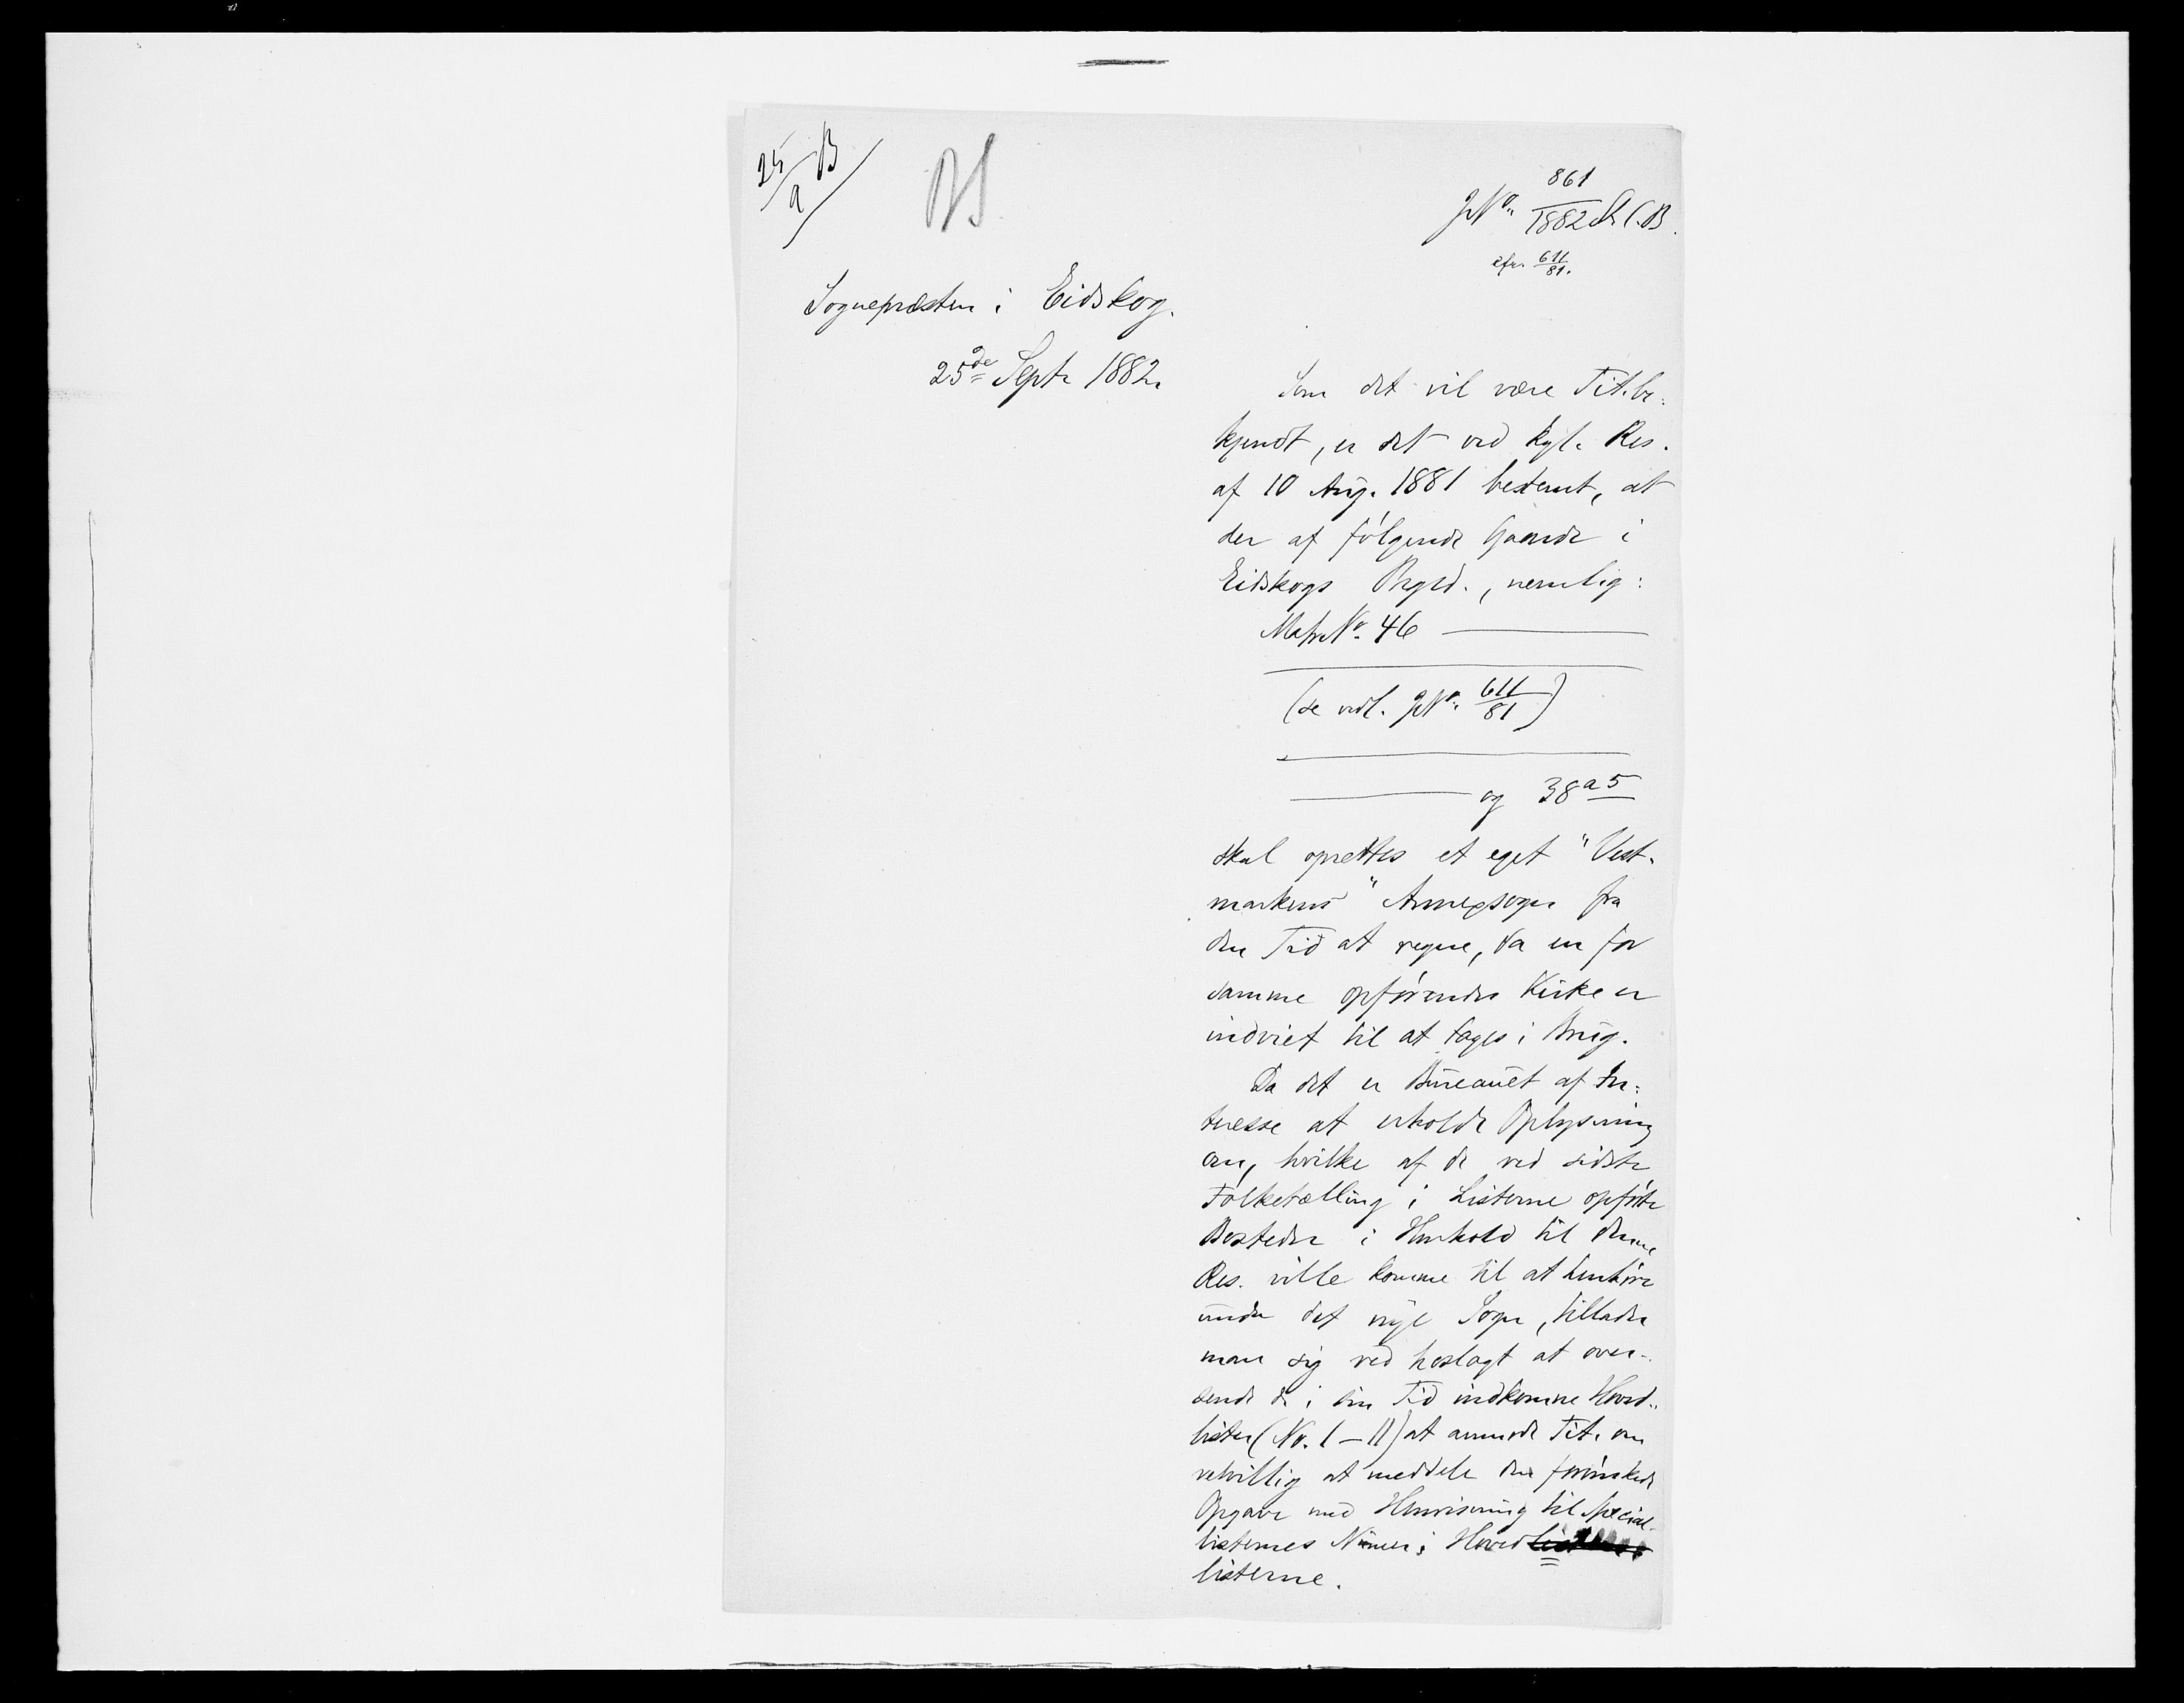 25/9 B
BS
JNo. 861/1882 S.C.B.
cfr. 611/81.
Sognepræsten i Eidskog.
25de Septr 1882.
Som det vil være Tit. be-
kjendt, er det ved kgl. Res.
af 10 Aug. 1881 bestemt, at
der af følgende Gaarde i
Eidskogs Prgld., nemlig:
Matr. No. 46 ———
(se vedl. JNo. 611/81)
——— og 38 a 5
skal oprettes et eget "Vest-
markens" Annexsogn fra
den Tid at regne, da en for
samme opførendes Kirke er
indviet til at tages i Brug.
Da det er Bureauet af In-
teresse at erholde Oplysning
om, hvilke af de ved sidste
Folketælling i Listerne opførte
Bosteder i Henhold til denne
Res. ville komme til at henhøre
under det nye Sogn, tillader
man sig ved hoslagt at over-
sende de i sin Tid indkomne Hoved-
lister (No. 1-11) at anmode Tit. om
velvillig at meddele den forønskede
Opgave med Henvisning til Special-
listernes Numer i Hoved
listerne.